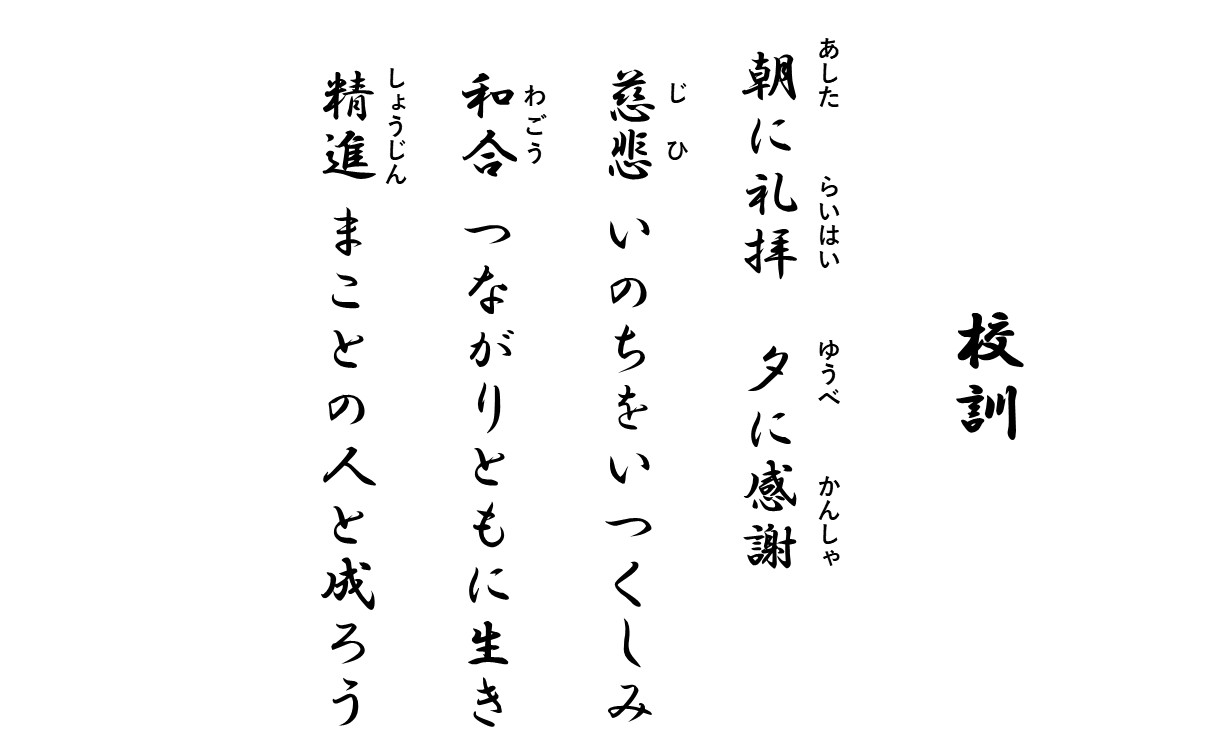 校訓
あした らいはい ゆうべ かんしゃ
朝に礼拝 夕に感謝
じひ
慈悲 いのちをいつくしみ
わごう
和合 つながりともに生き
しょうじん
精進 まことの人と成ろう